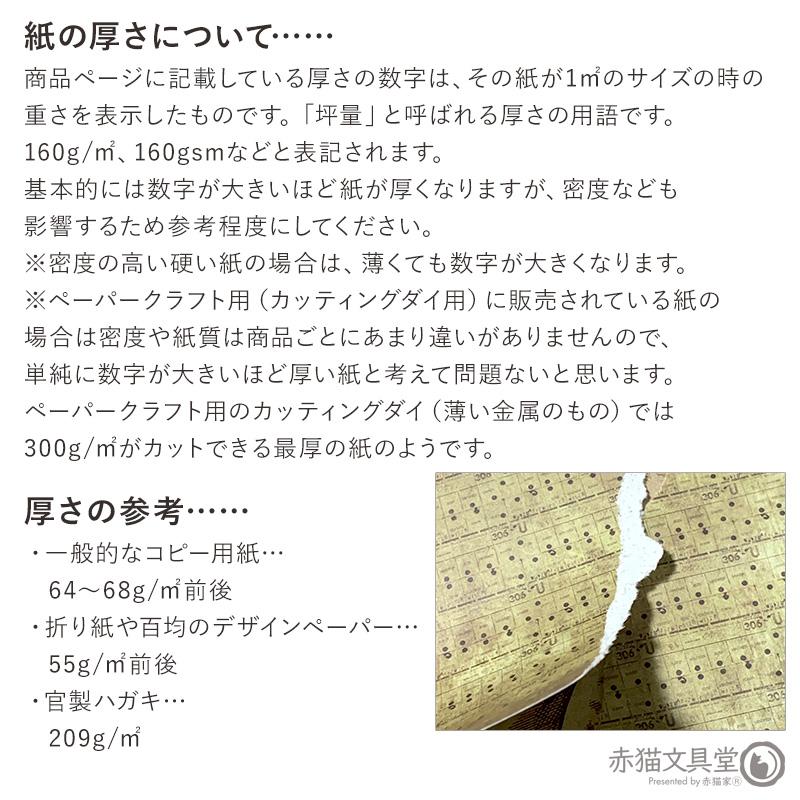 紙の厚さについて……
商品ページに記載している厚さの数字は、その紙が1㎡のサイズの時の
重さを表示したものです。「坪量」と呼ばれる厚さの用語です。
160g/㎡、160gsmなどと表記されます。
基本的には数字が大きいほど紙が厚くなりますが、密度なども
影響するため参考程度にしてください。
※密度の高い硬い紙の場合は、薄くても数字が大きくなります。
※ペーパークラフト用（カッティングダイ用）に販売されている紙の
場合は密度や紙質は商品ごとにあまり違いがありませんので、
単純に数字が大きいほど厚い紙と考えて問題ないと思います。
ペーパークラフト用のカッティングダイ（薄い金属のもの）では
300g/㎡がカットできる最厚の紙のようです。
厚さの参考……
・一般的なコピー用紙…
64〜68g/㎡前後
・折り紙や百均のデザインペーパー…
55g/㎡前後
・官製ハガキ…
209g/㎡
赤猫文具堂
Presented by 赤猫家®